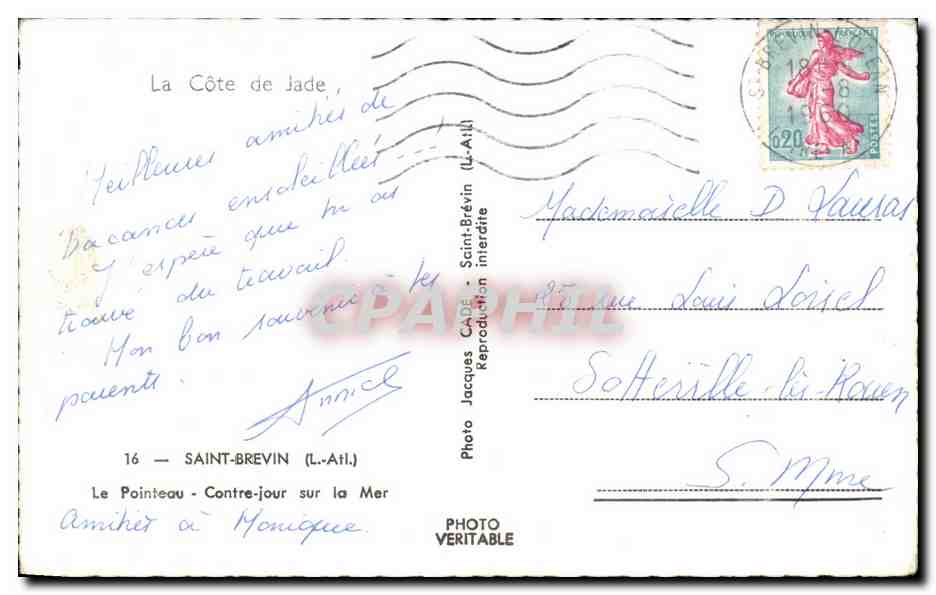 La Côte de Jade
Meilleures amitiés de
Vacances ensoleillées --- !
J'espère que tu as
trouvé du travail.
Mon bon souvenir à tes
parents.
Annick
16 — SAINT-BREVIN (L.-Atl.)
Le Pointeau - Contre-jour sur la Mer
Amitiés à Monique.
Photo Jacques CADE - Saint-Brévin (L.-Atl.)
Reproduction interdite
PHOTO
VERITABLE
REPUBLIQUE FRANÇAISE
0,20
POSTES
ST BREVIN
18
8
19
Mademoiselle D
rue Louis Loisel
Sotteville-lès-Rouen
S. Mme
CPAPHIL